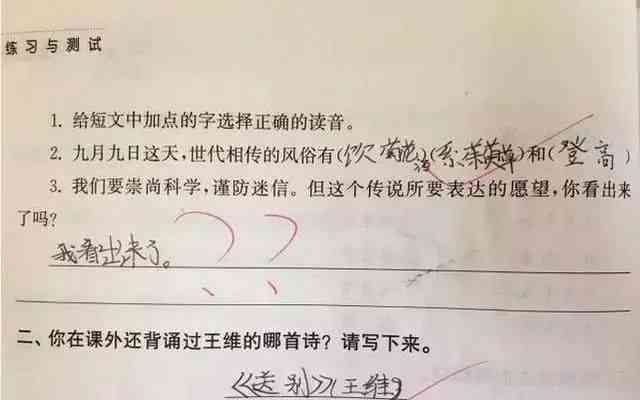 练习与测试
1. 给短文中加点的字选择正确的读音。
2. 九月九日这天,世代相传的风俗有(饮菊花酒)(系茱萸草)和(登高)
3. 我们要崇尚科学,谨防迷信。但这个传说所要表达的愿望,你看出来
了吗?
我看出来了。
二、你在课外还背诵过王维的哪首诗? 请写下来。
《送别》(王维)